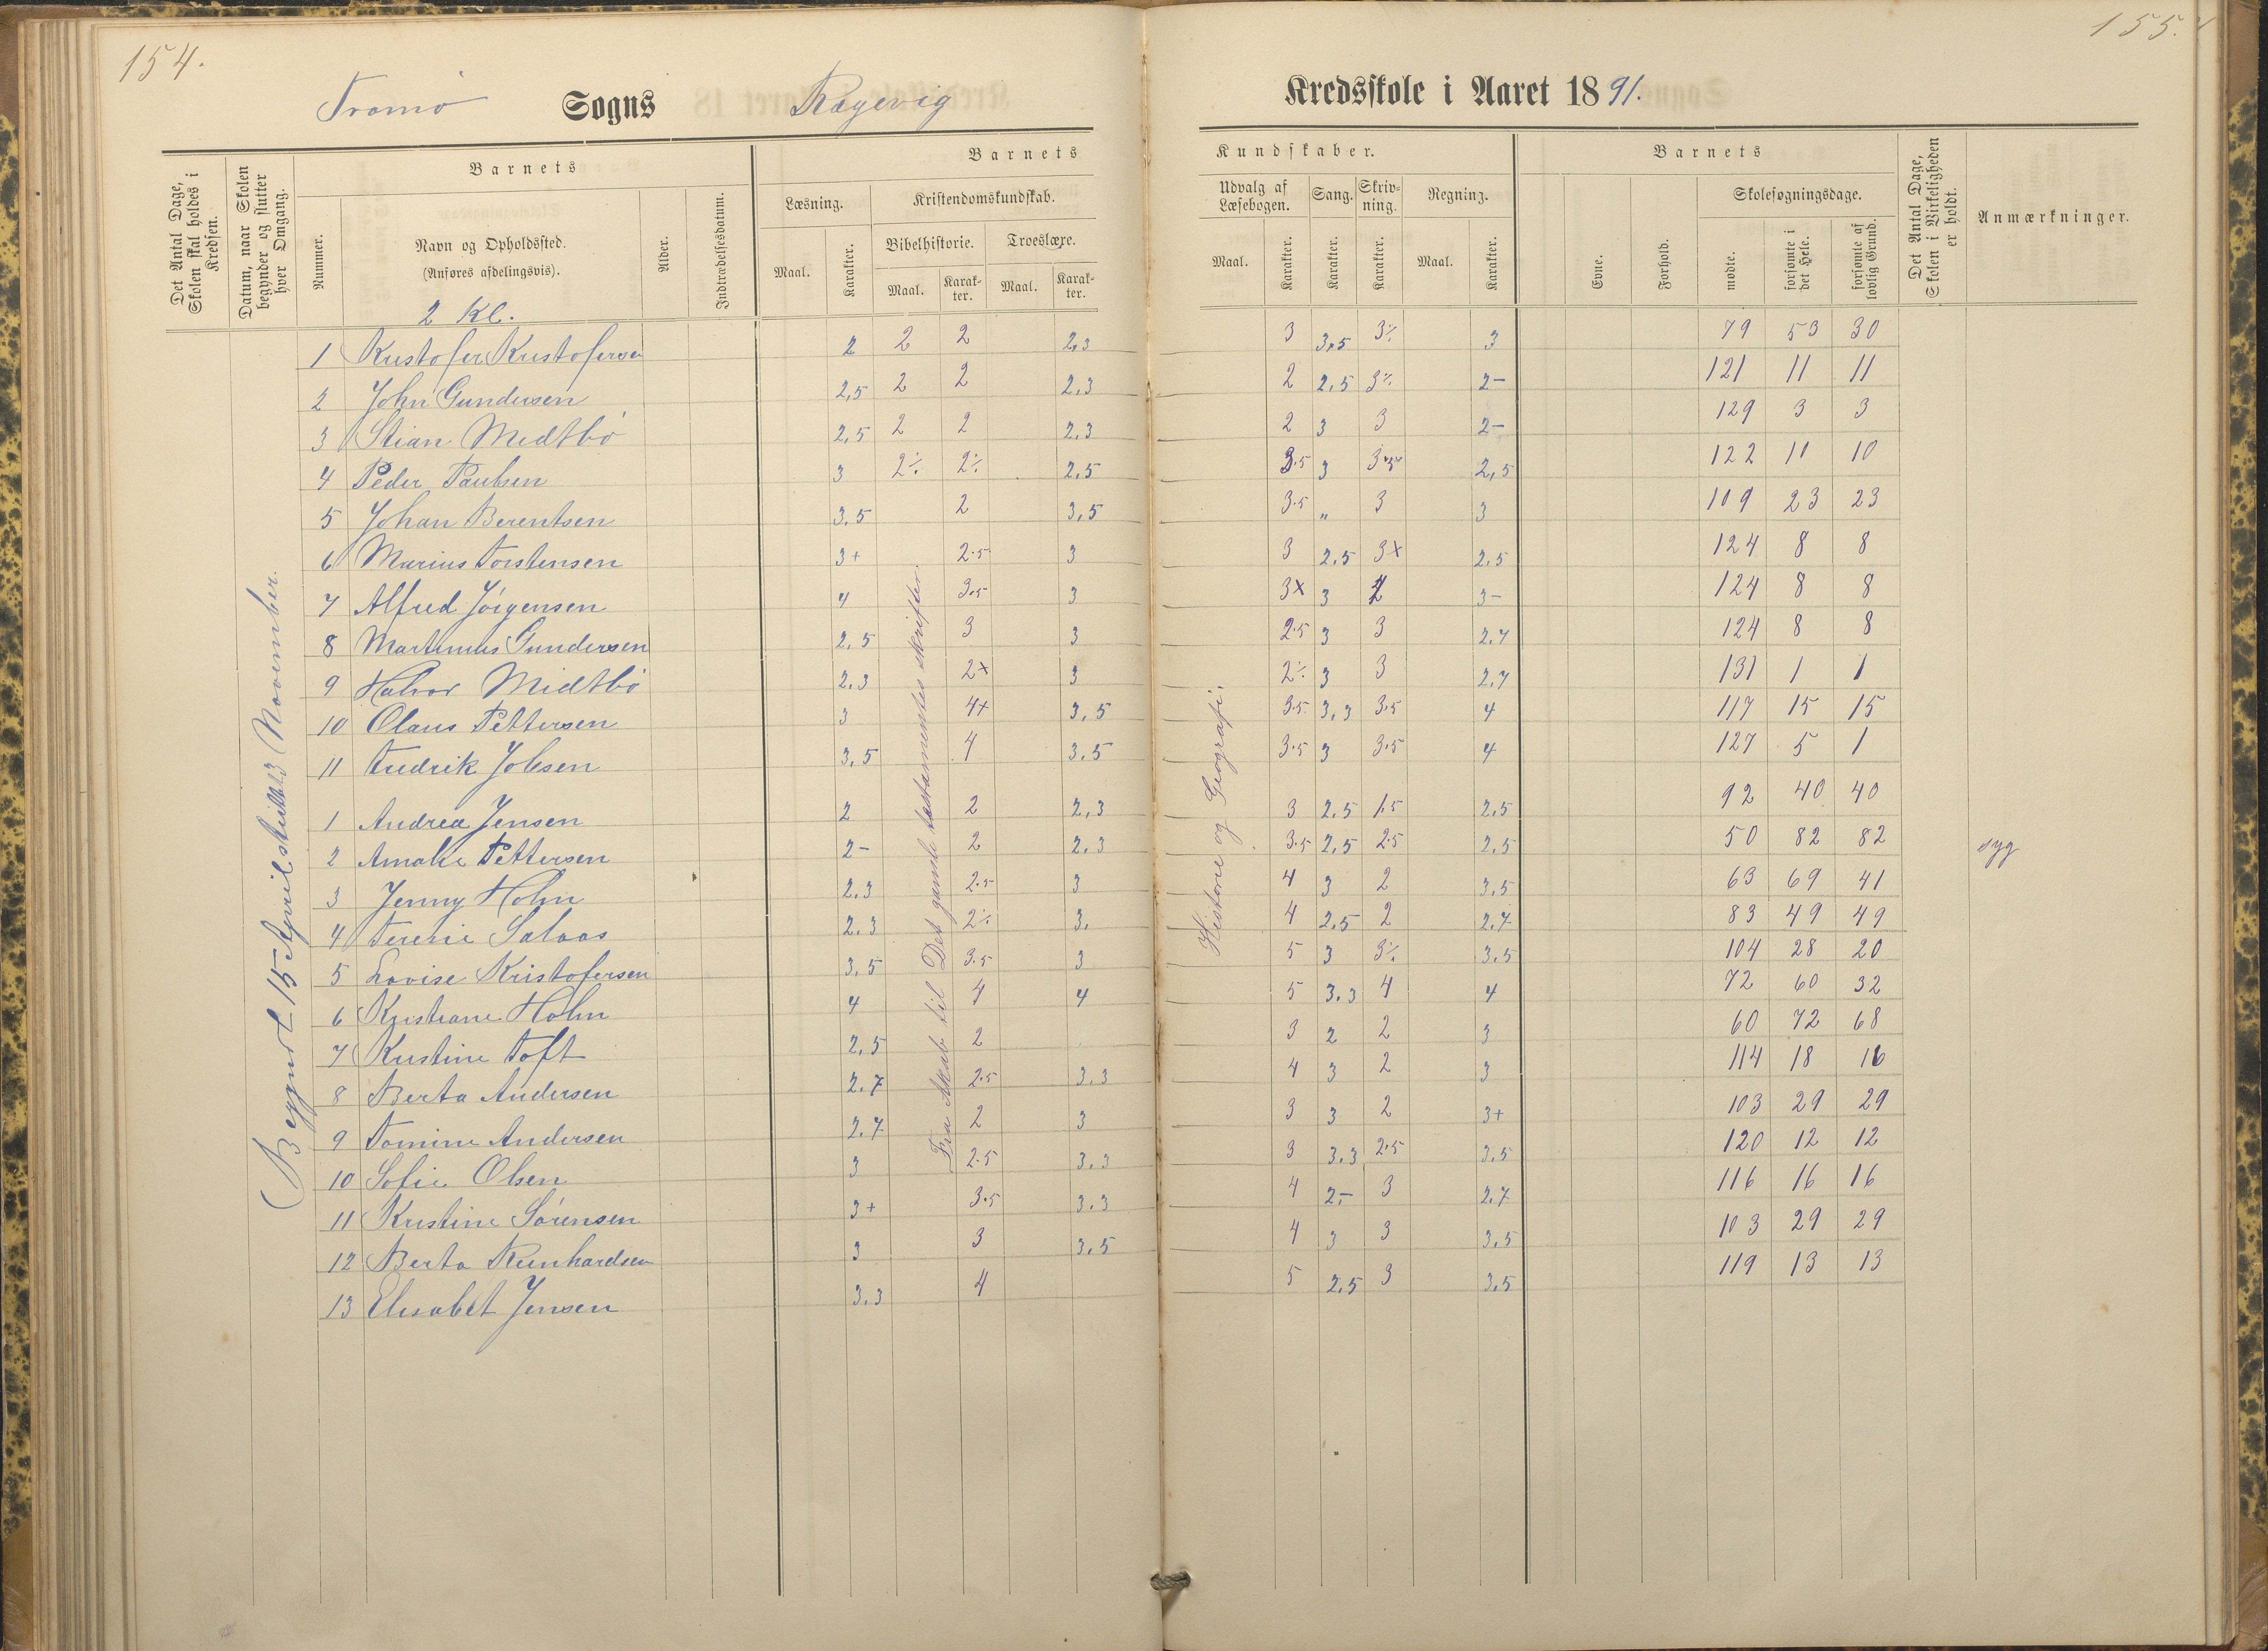 154.
155.
Tromø Sogns Rægevig Kredsskole i Aaret 1891.
Det Antal Dage, Skolen skal holdes i Kredsen.
Datum, naar Skolen begynder og slutter hver Omgang.
Nummer.
Barnets
Navn og Opholdssted.
(Anføres afdelingsvis).
Alder.
Indtrædelsesdatum.
Barnets
Læsning.
Maal.
Karakter.
Kristendomskundskab.
Bibelhistorie.
Maal.
Karakter.
Troeslære.
Maal.
Karakter.
Kundskaber.
Udvalg af Læsebogen.
Maal.
Karakter.
Sang.
Karakter.
Skrivning.
Karakter.
Regning.
Maal.
Karakter.
Barnets
Evne.
Forhold.
Skolesøgningsdage.
mødte.
forsømte i det Hele.
forsømte af lovlig Grund.
Det Antal Dage, Skolen i Virkeligheden er holdt.
Anmærkninger.
Begyndt 15 April sluttet 13 November.
Fra Skab til Det gamle testamentes skrifter.
Historie og Geografi.
2 Kl.
1 Kristofer Kristofersen 2 2 2 2,3 3 3,5 3÷ 3 79 53 30
2 John Gundersen 2,5 2 2 2,3 2 2,5 3÷ 2- 121 11 11
3 Stian Midtbø 2,5 2 2 2,3 2 3 3 2- 129 3 3
4 Peder Paulsen 3 2÷ 2÷ 2,5 3.5 3 3.5 2,5 122 11 10
5 Johan Berentsen 3,5 2 3,5 3.5 „ 3 3 109 23 23
6 Marius Torstensen 3+ 2.5 3 3 2,5 3x 2,5 124 8 8
7 Alfred Jörgensen 4 3.5 3 3x 3 3- 124 8 8
8 Martinius Gundersen 2,5 3 3 2.5 3 3 2,7 124 8 8
9 Halvor Midtbø 2,3 2x 3 2÷ 3 3 2,7 131 1 1
10 Olaus Pettersen 3 4x 3,5 3.5 3,3 3.5 4 117 15 15
11 Fredrik Jobsen 3,5 4 3,5 3.5 3 3.5 4 127 5 1
1 Andrea Jensen 2 2 2,3 3 2,5 1.5 2,5 92 40 40
2 Amalie Pettersen 2- 2 2,3 3.5 2,5 2.5 2,5 50 82 82 syg
3 Jenny Holm 2,3 2.5 3 4 3 2 3,5 63 69 41
4 Terese Salaas 2,3 2÷ 3, 4 2,5 2 2,7 83 49 49
5 Lovise Kristofersen 3,5 3.5 3 5 3 3÷ 3,5 104 28 20
6 Kristiane Holm 4 4 4 5 3,3 4 4 72 60 32
7 Kristine Toft 2,5 2 3 2 2 3 60 72 68
8 Berta Andersen 2,7 2.5 3,3 4 3 2 3 114 18 16
9 Tomine Andersen 2,7 2 3 3 3 2 3+ 103 29 29
10 Sofie Olsen 3 2.5 3,3 3 3,3 2.5 3,5 120 12 12
11 Kristine Sörensen 3+ 3.5 3,3 4 2,- 3 2,7 116 16 16
12 Berta Reinhardsen 3 3 3,5 4 3 3 3,5 103 29 29
13 Elisabet Jensen 3,3 4 5 2,5 3 3,5 119 13 13